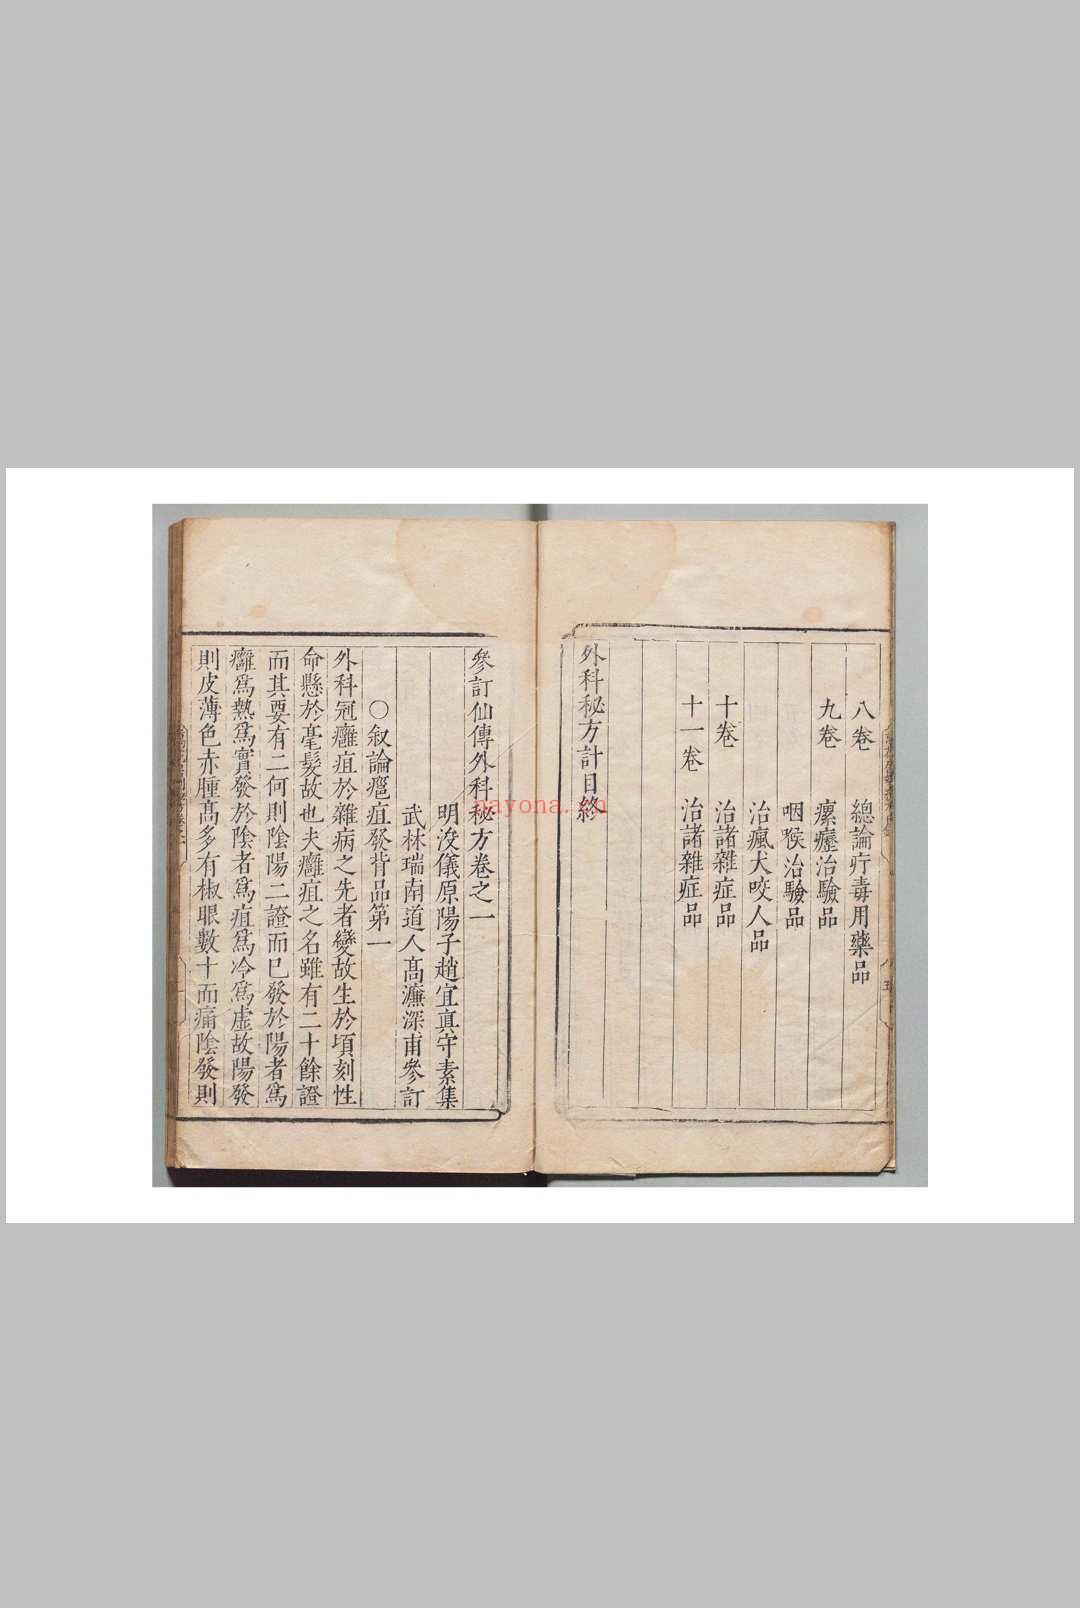 八卷　總論疔毒用藥品
九卷　瘰癧治驗品
咽喉治驗品
治瘋犬咬人品
十卷　治諸雜症品
十一卷　治諸雜症品
外科秘方計目終
參訂仙傳外科秘方卷之一
明浚儀原陽子趙宜真守素集
武林瑞南道人高濂深甫參訂
〇叙論癰疽發背品第一
外科冠癰疽於雜病之先者變故生於頃刻性
命懸於毫髮故也夫癰疽之名雖有二十餘證
而其要有二何則陰陽二證而已發於陽者爲
癰爲熱爲實發於陰者爲疽爲冷爲虛故陽發
則皮薄色赤腫高多有椒眼數十而痛陰發則
nayona.cn